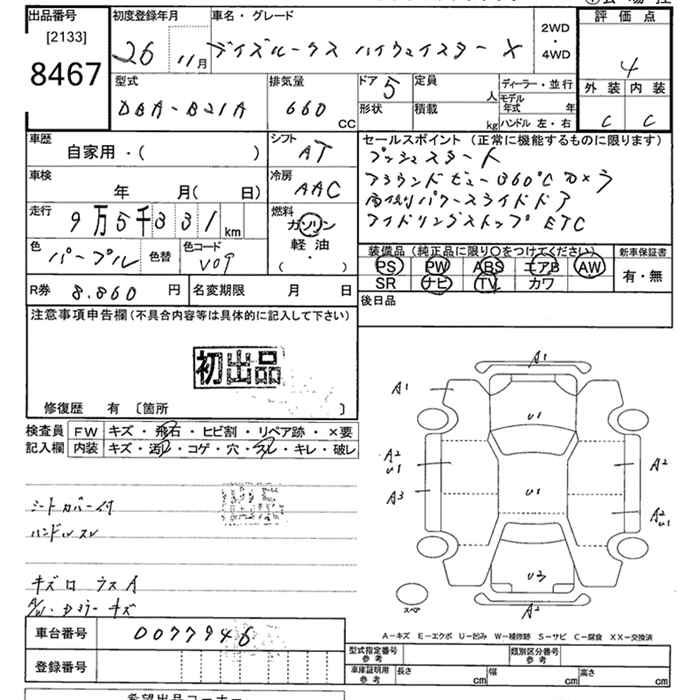 出品番号
[2133]
8467
初度登録年月
26 11月
車名・グレード
デイズルークス ハイウェイスター X
2WD
・
4WD
評価点
4
外装 内装
C C
型式
DBA-B21A
排気量
660 CC
ドア 5
形状
定員 人
積載 kg
ディーラー・並行
モデル年式 年
ハンドル 左・右
車歴
自家用・( )
シフト
AT
車検
年 月( 日)
冷房
AAC
走行
9万5千331km
燃料
ガソリン
軽油
( ・ )
色
パープル
色替
色コード
V09
セールスポイント (正常に機能するものに限ります)
プッシュスタート
アラウンドビュー360℃カメラ
両側パワースライドドア
アイドリングストップ ETC
装備品(純正品に限り○をつけてください)
PS PW ABS エアB AW
SR ナビ TV カワ
新車保証書
有・無
R券 8.860 円
名変期限 月 日
後日品
注意事項申告欄(不具合内容等は具体的に記入して下さい)
初出品
修復歴 有 〔箇所 〕
検査員
記入欄
FW キズ・飛石・ヒビ割・リペア跡・×要
内装 キズ・汚レ・コゲ・穴・スレ・キレ・破レ
シートカバー付
ハンドルスレ
A1
A1
U1
A2
U1
A3
U1
A2
A2
U1
U3
A2
スペア
車台番号 0077946
登録番号
A-キズ E-エクボ U-凹み W-補修跡 S-サビ C-腐食 XX-交換済
型式指定番号
参考
類別区分番号
参考
車庫証明用
参考
長さ cm
幅 cm
高さ cm
希望出品コーナー